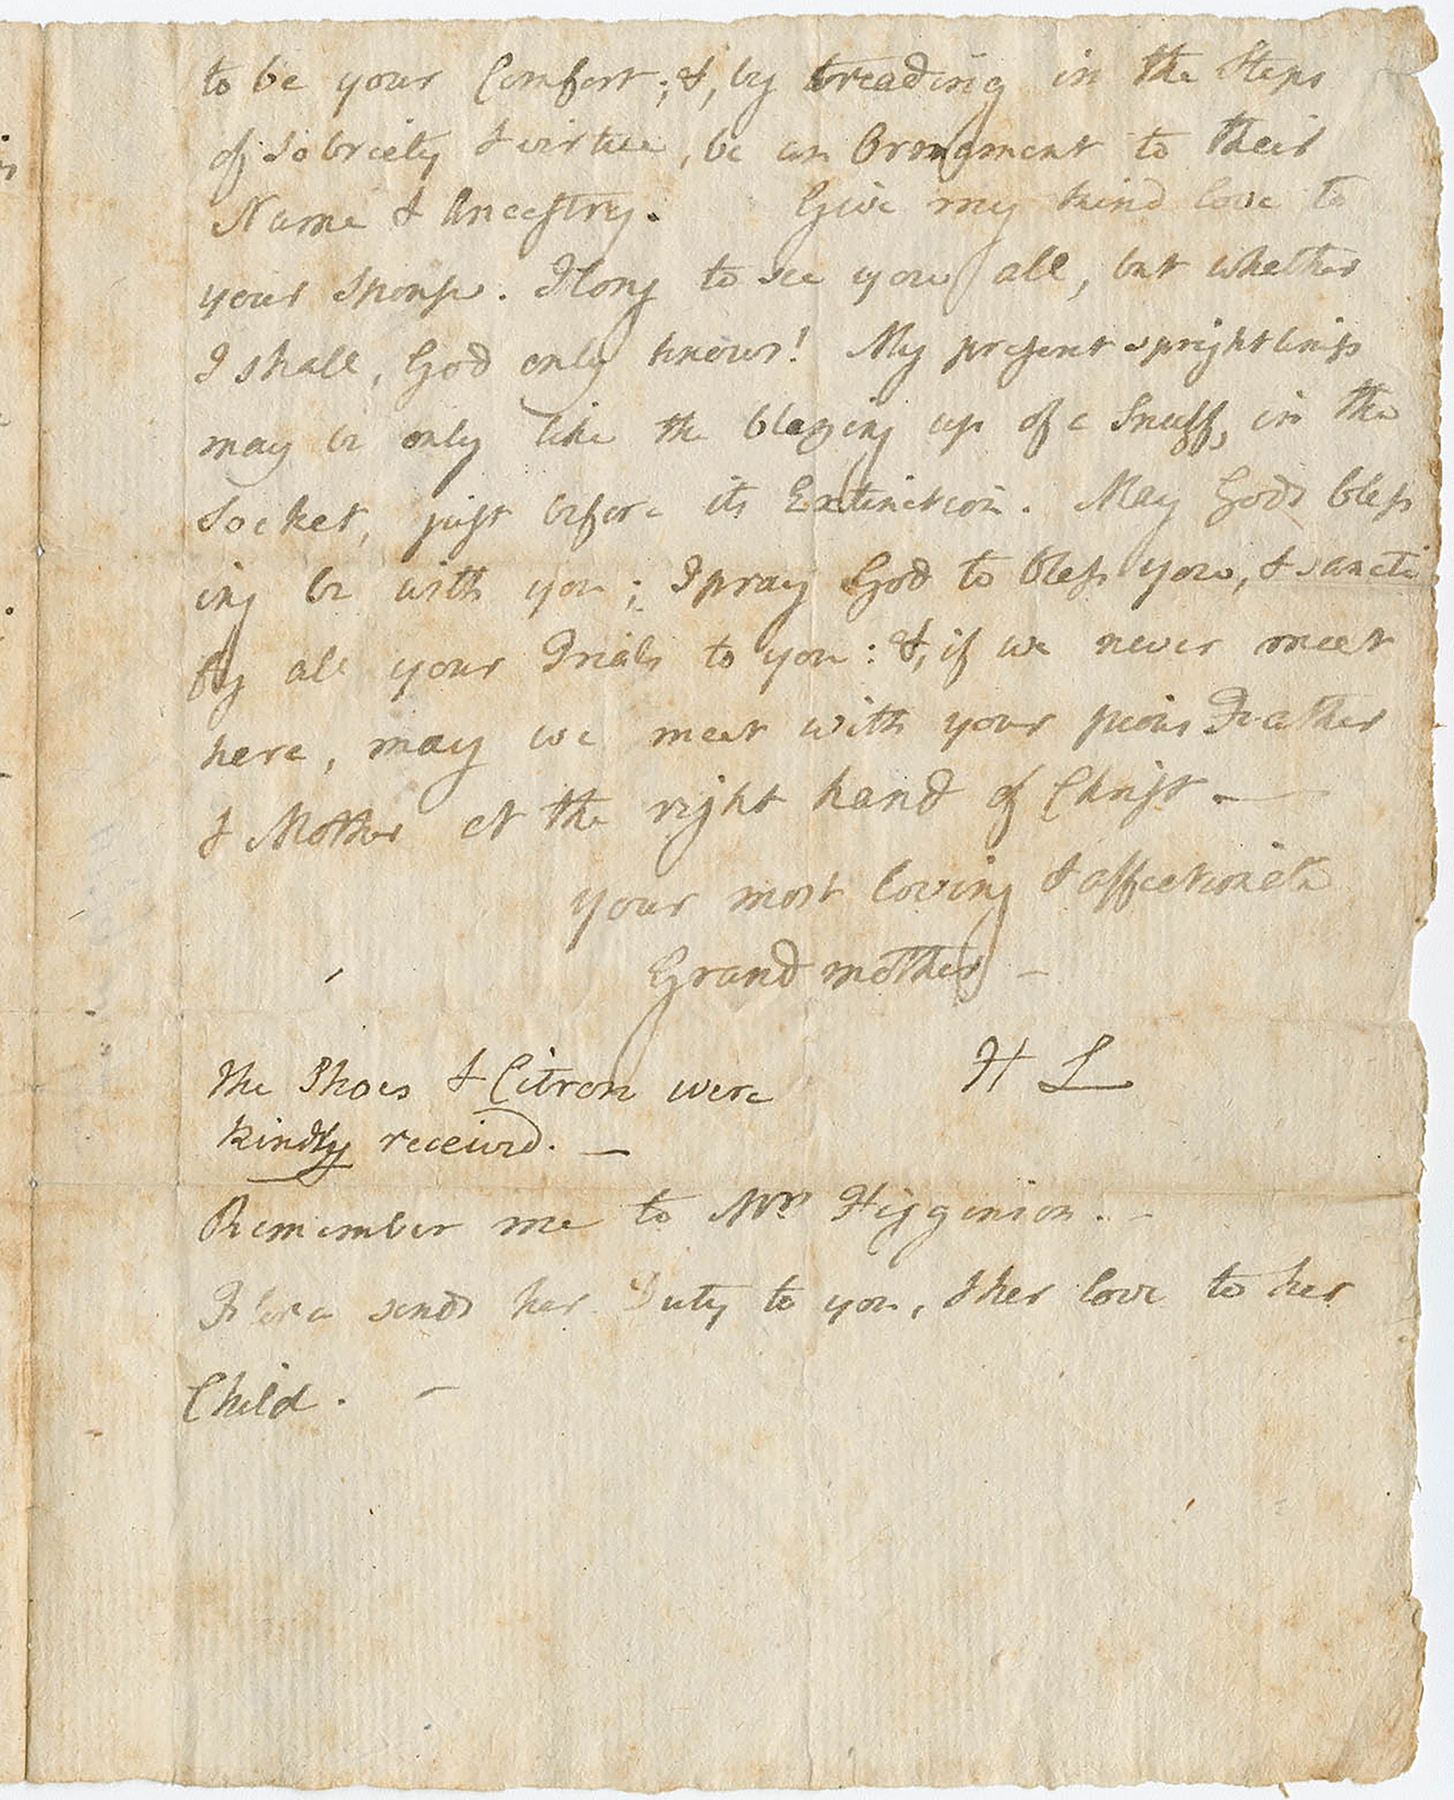 to be your Comfort; &, by treading in the Steps
of Sobriety & virtue, be an Ornament to their
Name & Ancestry. Give my kind love to
your Spouse. I long to see you all, but whether
I shall, God only knows! My present sprightliness
may be only like the blazing up of a Snuff, in the
Socket, just before its Extinction. May Gods bless
ing be with you; I pray God to bless you, & sancti
fy all your Trials to you: &, if we never meet
here, may we meet with your pious Father
& Mother at the right hand of Christ. —
your most loving & affectionate
Grandmother —
H L
The Shoes & Citron were
kindly receivd. —
Remember me to Mrs Higginson. -
Flora sends her Duty to you, & her love to her
Child. -